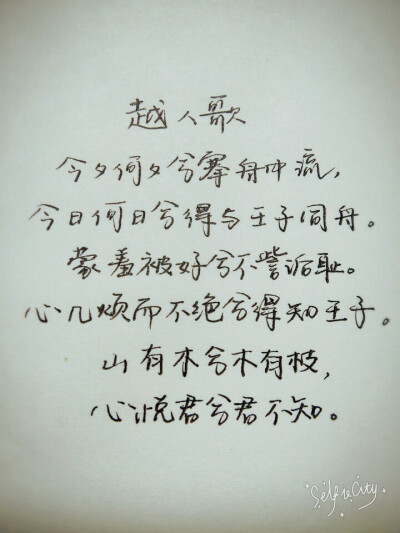 越人歌
今夕何夕兮搴舟中流，
今日何日兮得与王子同舟。
蒙羞被好兮不訾诟耻。
心几烦而不绝兮得知王子。
山有木兮木有枝，
心悦君兮君不知。
Selfie City